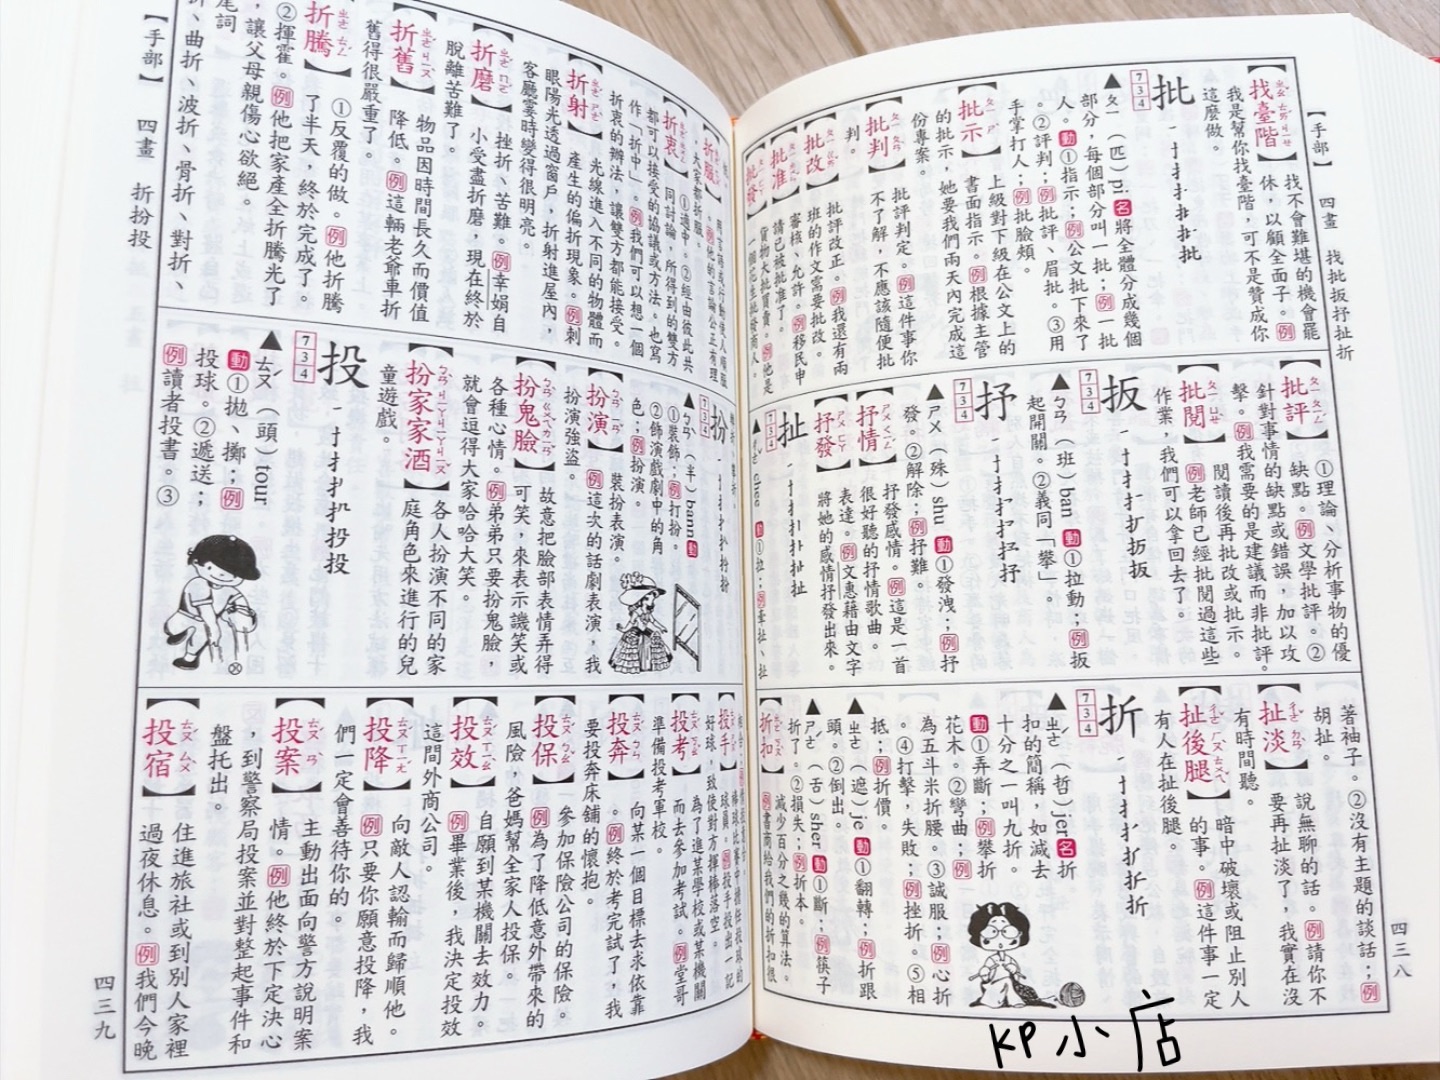 【手部】
四畫
找批扳抒扯折
四三八
【找臺階】
找不會難堪的機會罷
休，以顧全面子。例
我是幫你找臺階，可不是贊成你
這麼做。
批
734
▲ㄆㄧ（匹）pi 名將全體分成幾個
部分，每個部分叫一批；例一批
人。動①指示；例公文批下來了
。②評判；例批評，眉批。③用
手掌打人；例批臉頰。
【批示】
上級對下級在公文上的
書面指示。例根據主管
的批示，她要我們兩天內完成這
份專案。
【批判】
批評判定。例這件事你
不了解，不應該隨便批
判。
【批改】
批評改正。例我還有兩
班的作文需要批改。
【批准】
審核、允許。例移民申
請已被批准了。
【批發】
貨物大批買賣。例他是
【批評】
①理論、分析事物的優
缺點。例文學批評。②
針對事情的缺點或錯誤，加以攻
擊。例我需要的是建議而非批評。
【批閱】
閱讀後再批改或批示。
例老師已經批閱過這些
作業，我們可以拿回去了。
扳
734
▲ㄅㄢ（班）ban 動①拉動；例扳
起開關。②義同「攀」。
抒
734
▲ㄕㄨ（殊）shu 動①發洩；例抒
發。②解除；例抒難。
【抒情】
抒發感情。例這是一首
很好聽的抒情歌曲。
【抒發】
表達。例文惠藉由文字
將她的感情抒發出來。
扯
734
動①拉；例牽扯、扯
著袖子。②沒有主題的談話；例
胡扯。
【扯淡】
說無聊的話。例請你不
要再扯淡了，我實在沒
有時間聽。
【扯後腿】
暗中破壞或阻止別人
的事。例這件事一定
有人在扯後腿。
折
734
▲ㄓㄜˊ（哲）jer 名折
扣的簡稱，如減去
十分之一叫九折。
動①弄斷；例攀折
花木。②彎曲；例
為五斗米折腰。③誠服；例心折
。④打擊，失敗；例挫折。⑤相
抵；例折價。
▲ㄓㄜ（遮）je 動①翻轉；例折跟
頭。②倒出。
▲ㄕㄜˊ（舌）sher 動①斷；例筷子
折了。②損失；例折本。
【折扣】
減少百分之幾的算法。
例書商給我們的折扣很
【折服】
【折衷】
①適中。②經由彼此共
同討論，所得到的雙方
都可以接受的協議或方法。也寫
作「折中」。例我們可以想一個
折衷的辦法，讓雙方都能接受。
【折射】
光線進入不同的物體而
產生的偏折現象。例刺
眼陽光透過窗戶，折射進屋內，
客廳霎時變得很明亮。
【折磨】
挫折、苦難。例幸娟自
小受盡折磨，現在終於
脫離苦難了。
【折舊】
物品因時間長久而價值
降低。例這輛老爺車折
舊得很嚴重了。
【折騰】
①反覆的做。例他折騰
了半天，終於完成了。
②揮霍。例他把家產全折騰光了
，讓父母親傷心欲絕。
尾詞
折、曲折、波折、骨折、對折、
扮
734
▲ㄅㄢˋ（半）bann 動
①裝飾；例打扮。
②飾演戲劇中的角
色；例扮演。
【扮演】
裝扮表演。
例這次的話劇表演，我
扮演強盜。
【扮鬼臉】
故意把臉部表情弄得
可笑，來表示譏笑或
各種心情。例弟弟只要扮鬼臉，
就會逗得大家哈哈大笑。
【扮家家酒】
各人扮演不同的家
庭角色來進行的兒
童遊戲。
投
734
▲ㄊㄡˊ（頭）tour
動①拋、擲；例
投球。②遞送；
例讀者投書。③
【投手】
棒球比賽中擔任投球的
球員。例投手投出一記
好球，致使對方揮棒落空。
【投考】
為了進某學校或某機關
而去參加考試。例堂哥
準備投考軍校。
【投奔】
向某一個目標去求依靠
。例終於考完試了，我
要投奔床舖的懷抱。
【投保】
參加保險公司的保險。
例為了降低意外帶來的
風險，爸媽幫全家人投保。
【投效】
自願到某機關去效力。
例畢業後，我決定投效
這間外商公司。
【投降】
向敵人認輸而歸順他。
例只要你願意投降，我
們一定會善待你的。
【投案】
主動出面向警方說明案
情。例他終於下定決心
，到警察局投案並對整起事件和
盤托出。
【投宿】
住進旅社或到別人家裡
過夜休息。例我們今晚
【手部】
四畫
折扮投
四三九
KP小店